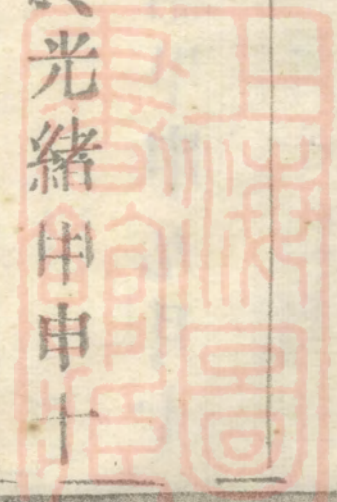 光緒甲申十
上海圖
書館藏